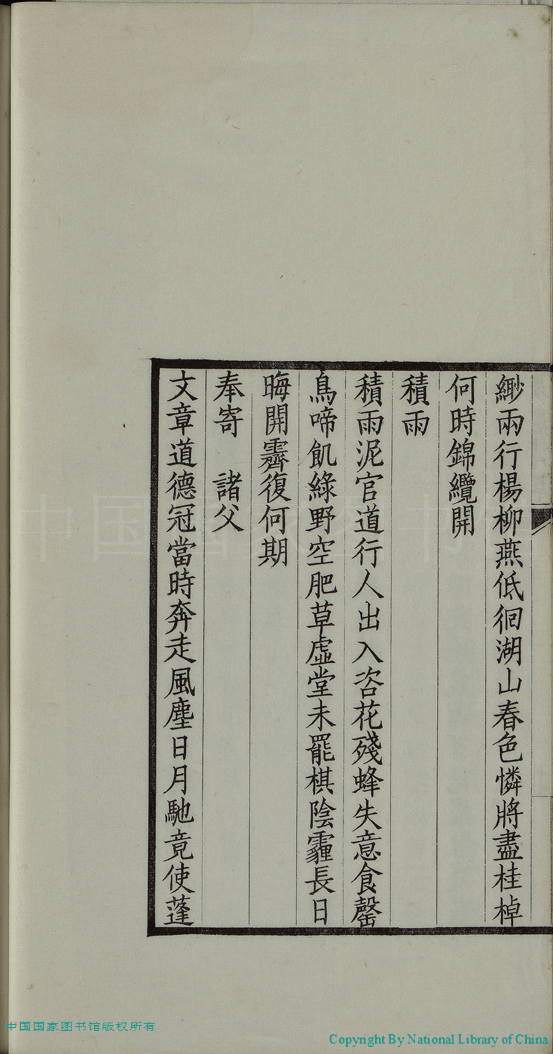 緲兩行楊柳燕低徊湖山春色憐將盡桂棹
何時錦纜開
積雨
積雨泥官道行人出入咨花殘蜂失意食罄
鳥啼飢綠野空肥草虛堂未罷棋陰霾長日
晦開霽復何期
奉寄　諸父
文章道德冠當時奔走風塵日月馳竟使蓬
中国国家图书馆版权所有
Copyright By National Library of China